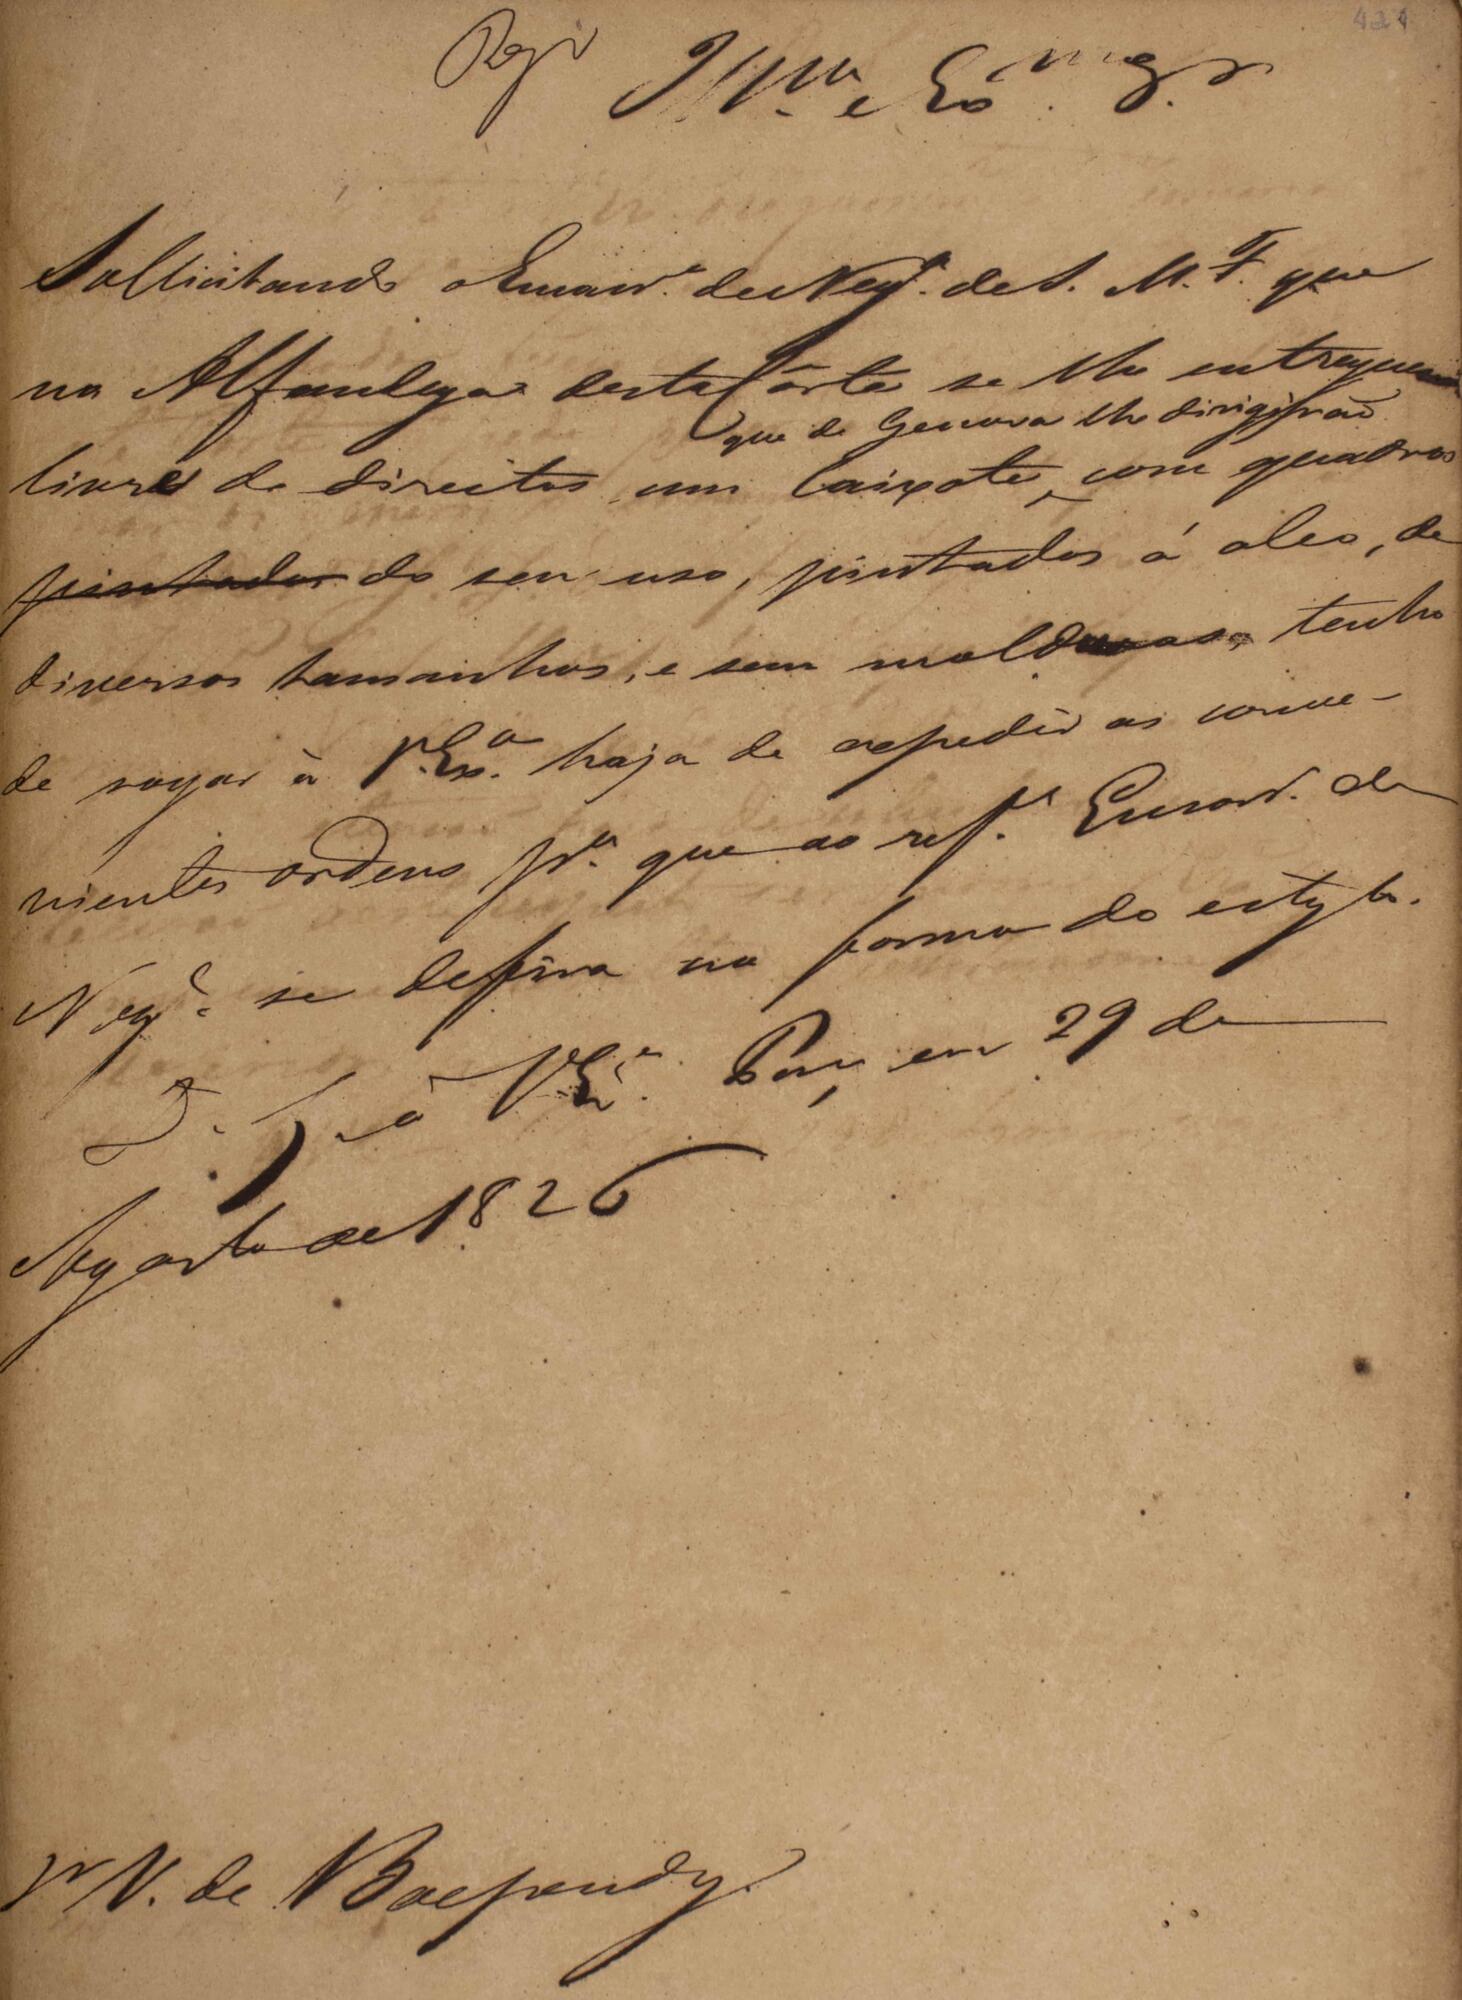 421
Reg.
Illmo. e Exmo. Sr.
Sollicitando o Encarr.º de Neg.ˢ de S. M. F. que
na Alfandega desta Côrte se lhe entreguem
que de Genova lhe dirigírão
livre de direitos um Caixote, com quadros
pintados do seu uso, pintados á oleo, de
diversos tamanhos, e sem molduras, tenho
de rogar á V. Ex.ª haja de expedir as conve-
nientes ordens p.ª que ao ref.º Encarr. de
Neg.ˢ se defira na forma do estylo.
D. G. á V. Ex.ª Paço em 29 de
Agosto de 1826
Sr V. de Baependy.